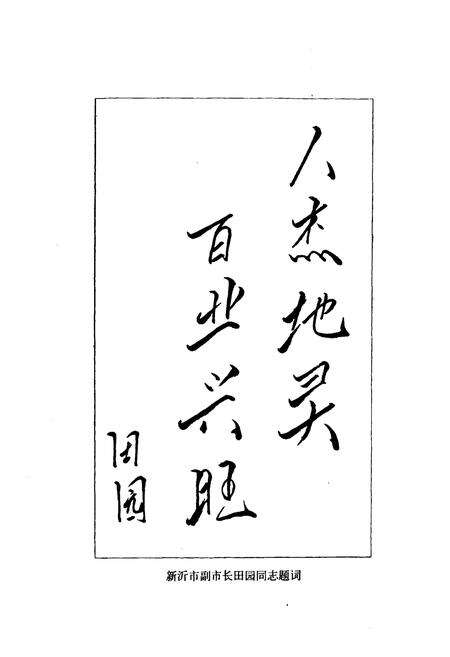 人杰地灵
百业兴旺
田园
新沂市副市长田园同志题词